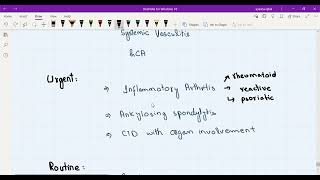 Systemic Vasculitis
GCA
Urgent:
→ Inflammatory Arthritis
→ Rheumatoid
→ reactive
→ psoriatic
→ Ankylosing spondylytis
→ CTD with organ involvement
Routine: